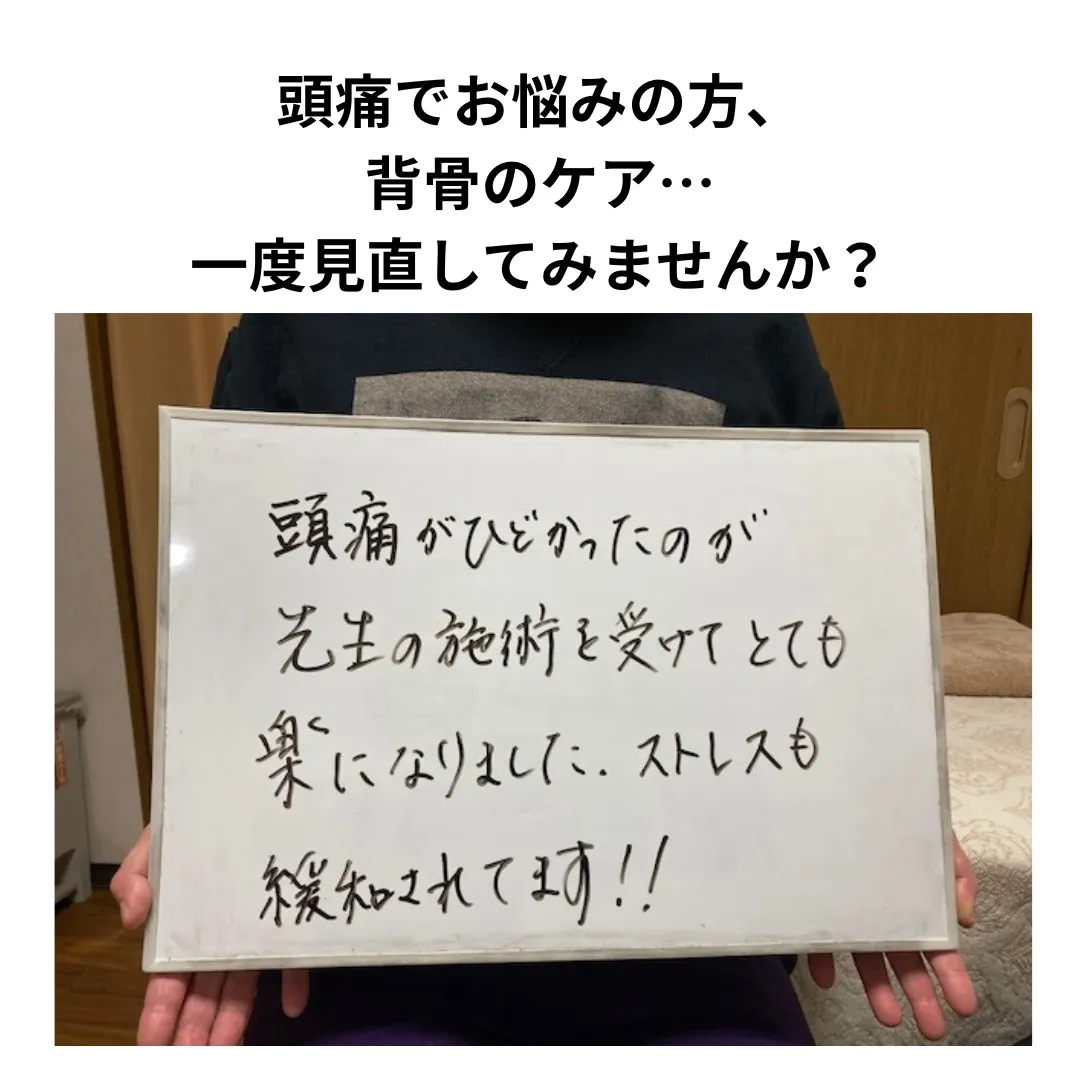 頭痛でお悩みの方、
背骨のケア…
一度見直してみませんか？
頭痛がひどかったのが
先生の施術を受けてとても
楽になりました.ストレスも
緩和されてます!!